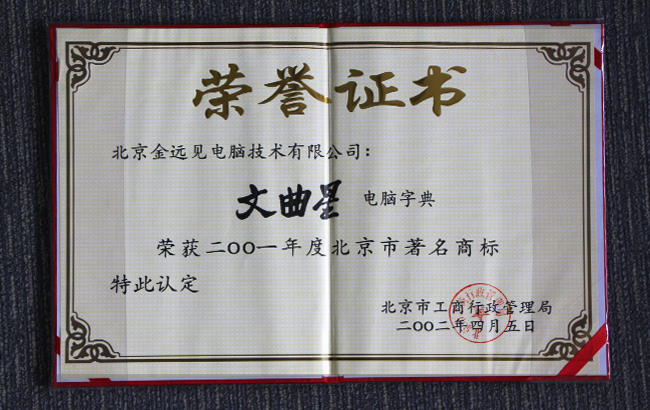 荣誉证书
北京金远见电脑技术有限公司：
文曲星 电脑字典
荣获二〇〇一年度北京市著名商标
特此认定
北京市工商行政管理局
二〇〇二年四月五日